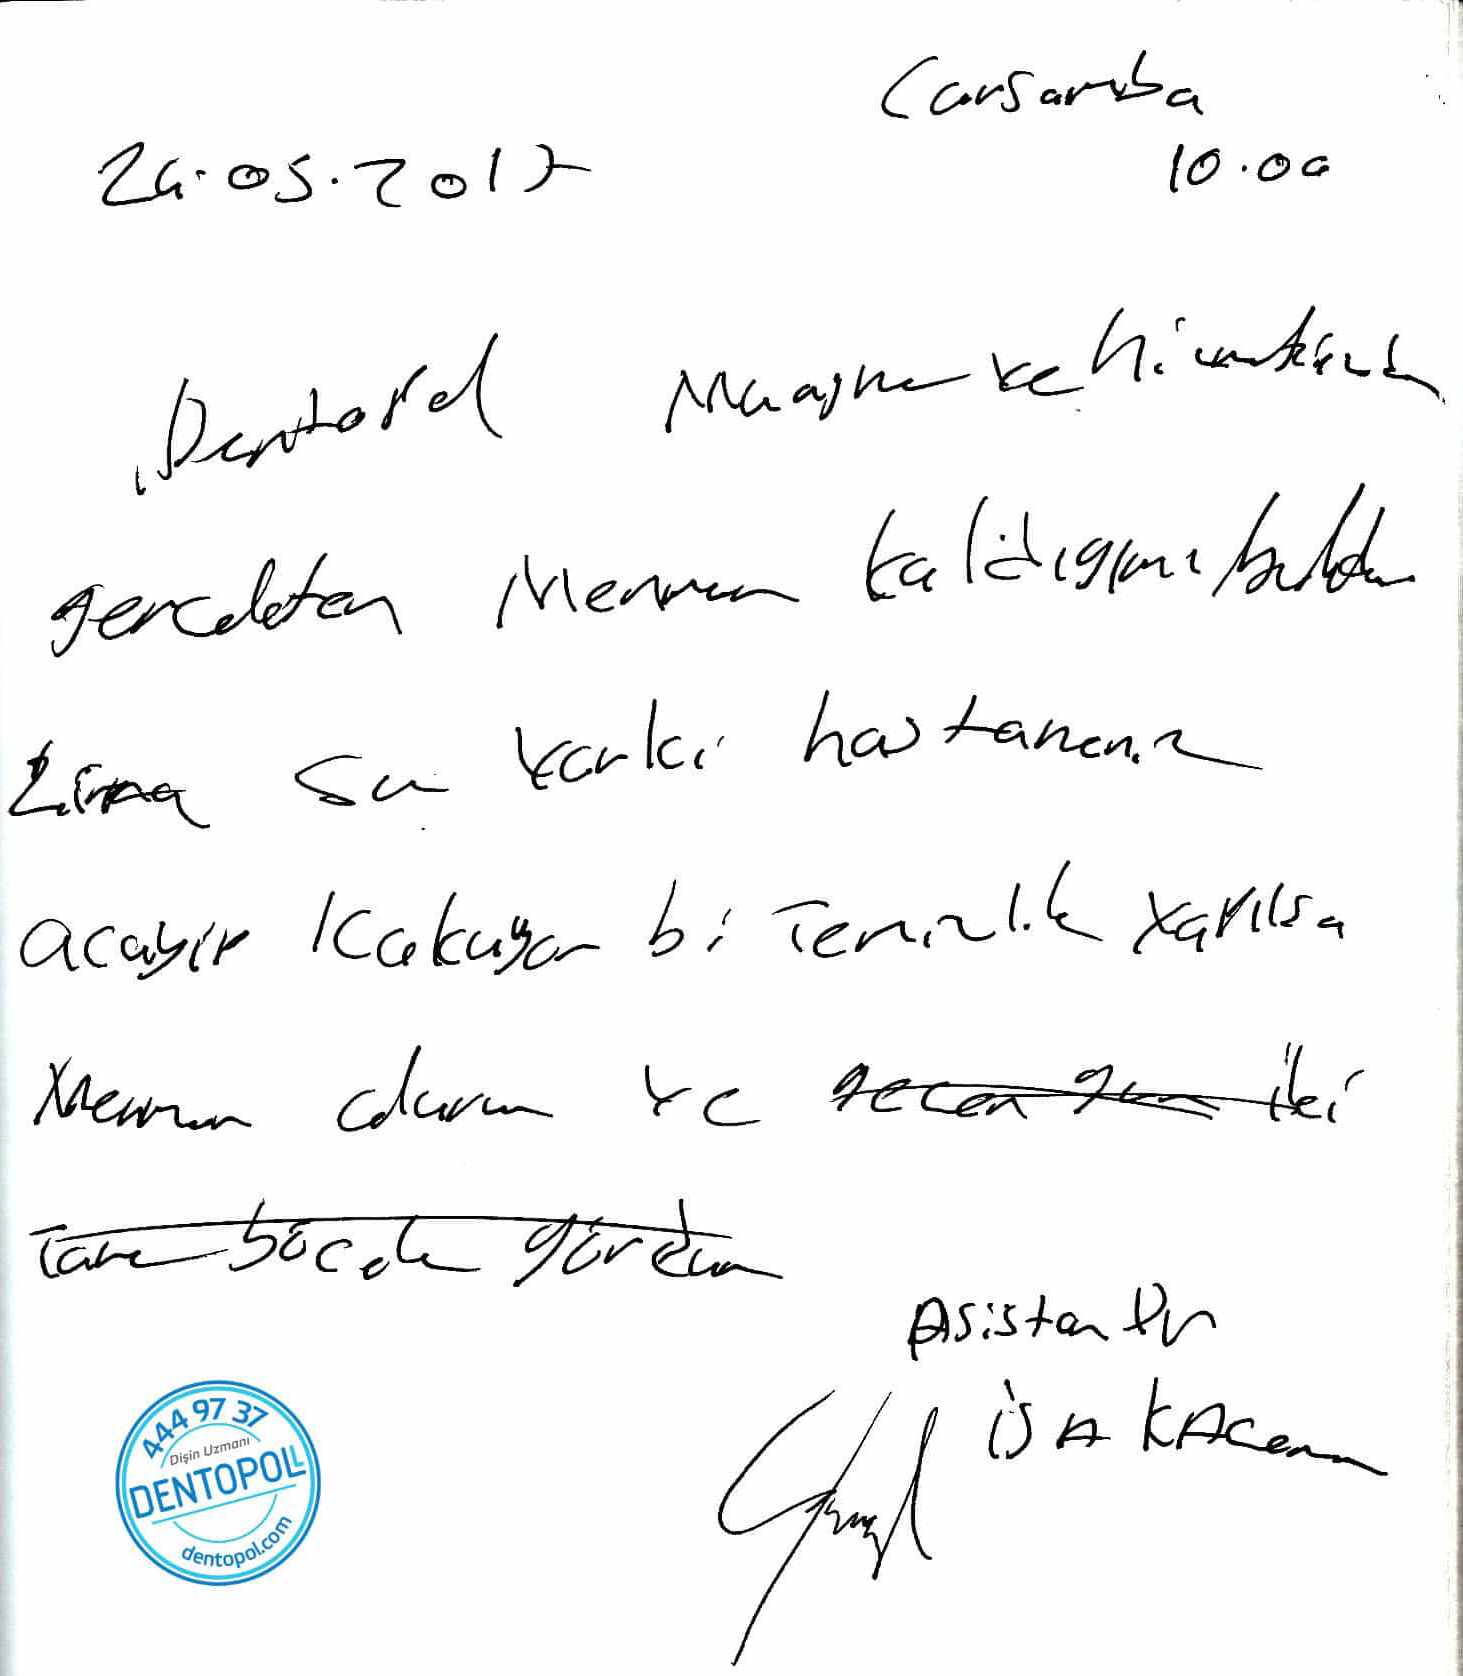 Carsamba
24.05.2017 10.00
Dentopol Muayne ve
gercekten Memnun kaldıgımı
su varki hastaneniz
acayip Kokuyor bi Temizlik Yapılsa
Memnun olurum ve gecen gun iki
Tane böcek gördum
Asistan Dr
iSA KAcan
444 97 37
Dişin Uzmanı
DENTOPOL
dentopol.com